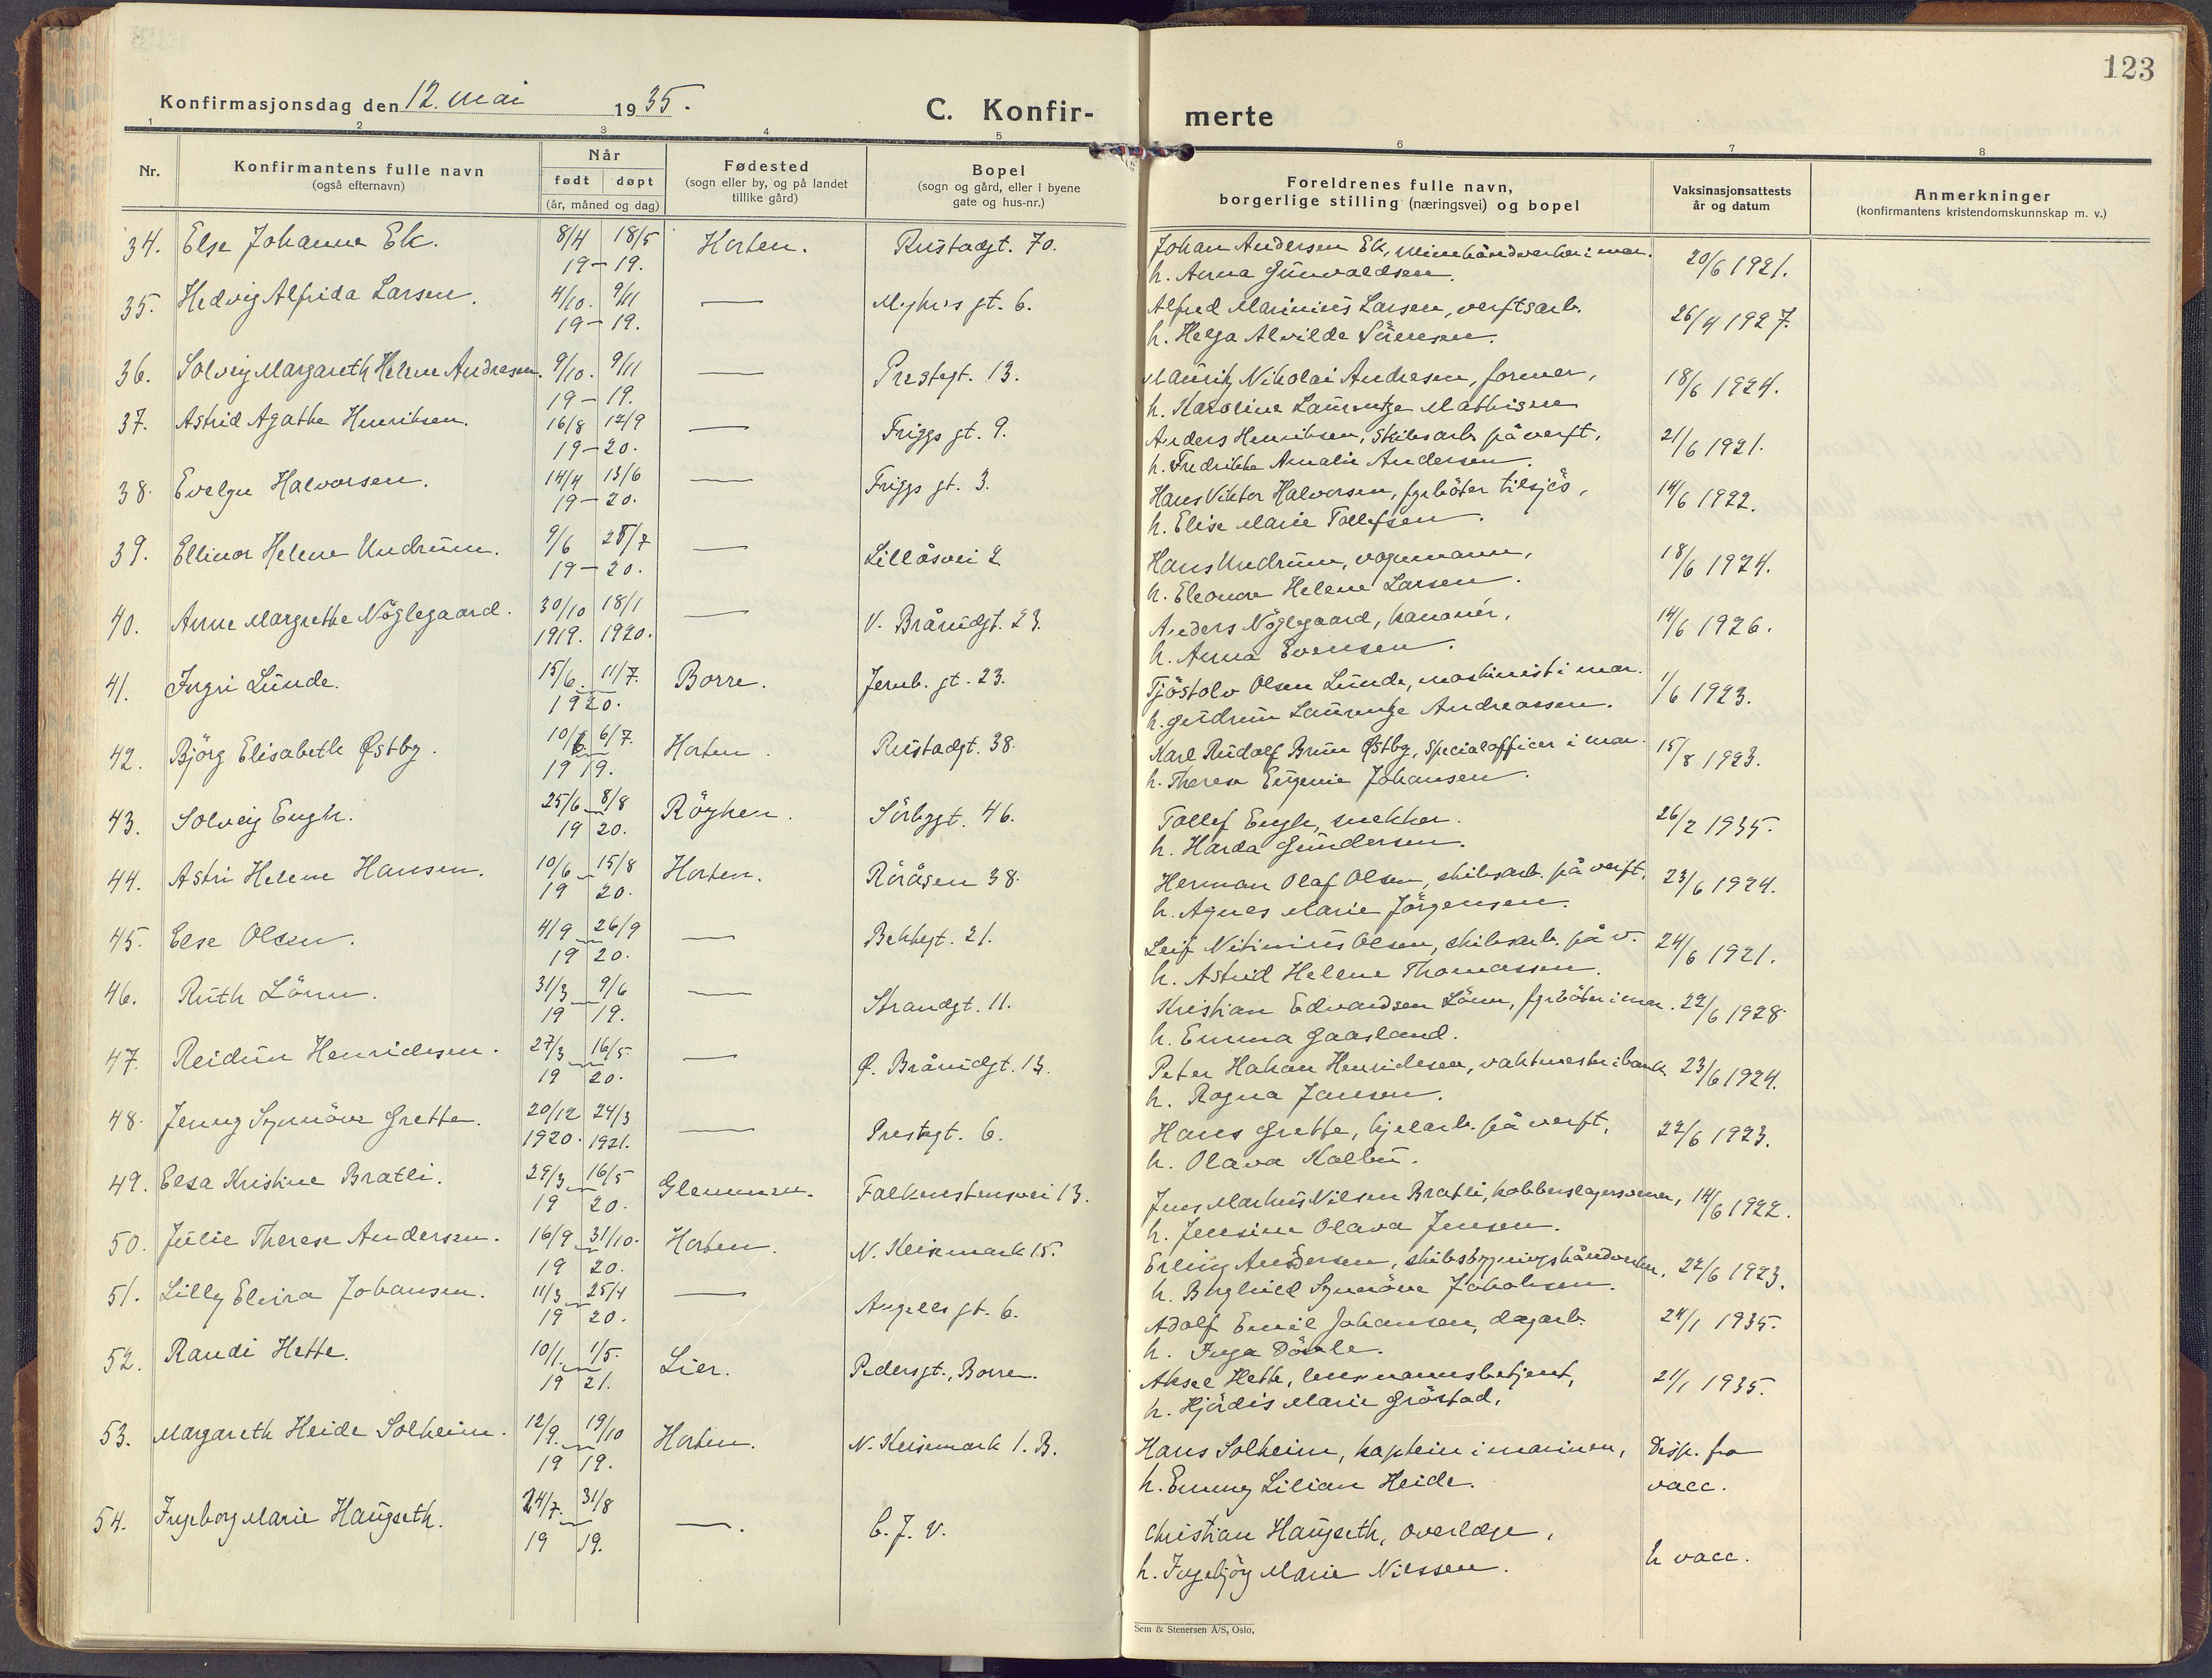 123
Konfirmasjonsdag den 12. mai 1935.
C. Konfir- merte
1 2 3 4 5 6 7 8
Nr.
Konfirmantens fulle navn
(også efternavn)
Når
født døpt
(år, måned og dag)
Fødested
(sogn eller by, og på landet
tillike gård)
Bopel
(sogn og gård, eller i byene
gate og hus-nr.)
Foreldrenes fulle navn,
borgerlige stilling (næringsvei) og bopel
Vaksinasjonsattests
år og datum
Anmerkninger
(konfirmantens kristendomskunnskap m. v.)
34. Else Johanne Ek. 8/4 18/5 Horten. Rustadgt. 70. Johan Andersen Ek, minehåndverker i mar. 20/6 1921.
19 – 19. h. Anna Gunvaldsen.
35. Hedvig Alfrida Larsen. 4/10. 9/11 — Myhrs gt. 6. Alfred Marinius Larsen, verftsarb. 26/4 1927.
19 – 19. h. Helga Alvilde Sörensen.
36. Solveig Margareth Helene Andresen. 9/10. 9/11 — Prestegt. 13. Mauritz Nikolai Andresen, former, 18/6 1924.
19 – 19. h. Karoline Laurentze Mathisen
37. Astrid Agathe Henriksen. 16/8 12/9 — Friggs gt. 9. Anders Henriksen, Skibsarb. på verft, 21/6 1921.
19 – 20. h. Fredrikke Amalie Andersen.
38. Evelyn Halvorsen. 14/4 13/6 — Friggs gt. 3. Hans Viktor Halvorsen, fyrböter tilsjös, 14/6 1922.
19 – 20. h. Elise Marie Tollefsen.
39. Ellinor Helene Undrum. 9/6 25/7 — Lillåsvei 2 Hans Undrum, vognmann, 18/6 1924.
19 – 20. h. Eleonora Helene Larsen.
40. Anne Margrethe Nöglegaard. 30/10 18/1 — V. Brårudgt. 23. Anders Nöglegaard, kanonér, 14/6 1926.
1919. 1920. h. Anna Evensen.
41. Ingri Lunde. 15/6. 11/7. Borre. Jernb. gt. 23. Tjöstolv Olsen Lunde, maskinist i mar. 1/6 1923.
1920. h. Gudrun Laurentze Andreassen.
42. Björg Elisabeth Østby. 10/6 6/7. Horten. Rustadgt. 38. Karl Rudolf Brun Østby, Specialofficer i mar. 15/8 1923.
19 19. h. Therese Eugenie Johansen.
43. Solveig Engh. 25/6 8/8 Röyken. Sörbygt. 46. Tollef Engh, snekker. 26/2 1935.
19 20. h. Harda Gundersen.
44. Astri Helene Hansen. 10/6 15/8 Horten. Röråsen 38. Herman Olaf Olsen, skibsarb. på verft, 23/6 1924.
19 20. h. Agnes Marie Jörgensen.
45. Else Olsen. 4/9 26/9 — Bekkegt. 21. Leif Nitinius Olsen, skibsarb. på v. 24/6 1921.
19 20. h. Astrid Helene Thomassen.
46. Ruth Lönn. 31/3 9/6 — Strandgt. 11. Kristian Edvardsen Lönn, fyrböter i mar. 22/6 1928.
19 19. h. Emma Gaasland.
47. Reidun Henriksen. 27/3 16/5 — Ø. Brårudgt. 13. Peter Hakon Henriksen, vaktmester i bank. 23/6 1924.
19 20. h. Ragna Jansen.
48. Jenny Synnöve Grette. 20/12 24/3 — Prestegt. 6. Hans Grette, kjelarb. på verft, 22/6 1923.
1920. 1921. h. Olava Kolbu.
49. Elsa Kristine Bratli. 29/3 16/5 Glemmen. Falkenstensvei 13. Jens Markus Nilsen Bratli, kobberslagersvenn, 14/6 1922.
19 20. h. Jensine Olava Jensen.
50. Julie Therese Andersen. 16/9 31/10. Horten. N. Keisemark 15. Erling Andersen, skibsbygningshåndverker, 22/6 1923.
19 20. h. Borghild Synnöve Jakobsen.
51. Lilly Elvira Johansen. 11/3 25/4 — Angells gt. 6. Adolf Emil Johansen, dagarb. 24/1 1935.
19 20. h. Inga Dövle.
52. Randi Hette. 10/1. 1/5. Lier. Pedersgt., Borre. Aksel Hette, lensmannsbetjent, 21/1 1935.
19 21. h. Hjördis Marie Gröstad.
53. Margareth Heide Solheim. 12/9. 19/10 Horten. N. Keisemark 1. B. Hans Solheim, kaptein i marinen, Disp. fra
19 19. h. Emmy Lilian Heide. vacc.
54. Ingeborg Marie Haugseth. 24/7. 31/8 —. C. J. V. Christian Haugseth, overlæge,
19 19. h. Ingebjörg Marie Nilssen. h vacc.
Sem & Stenersen A/S, Oslo.